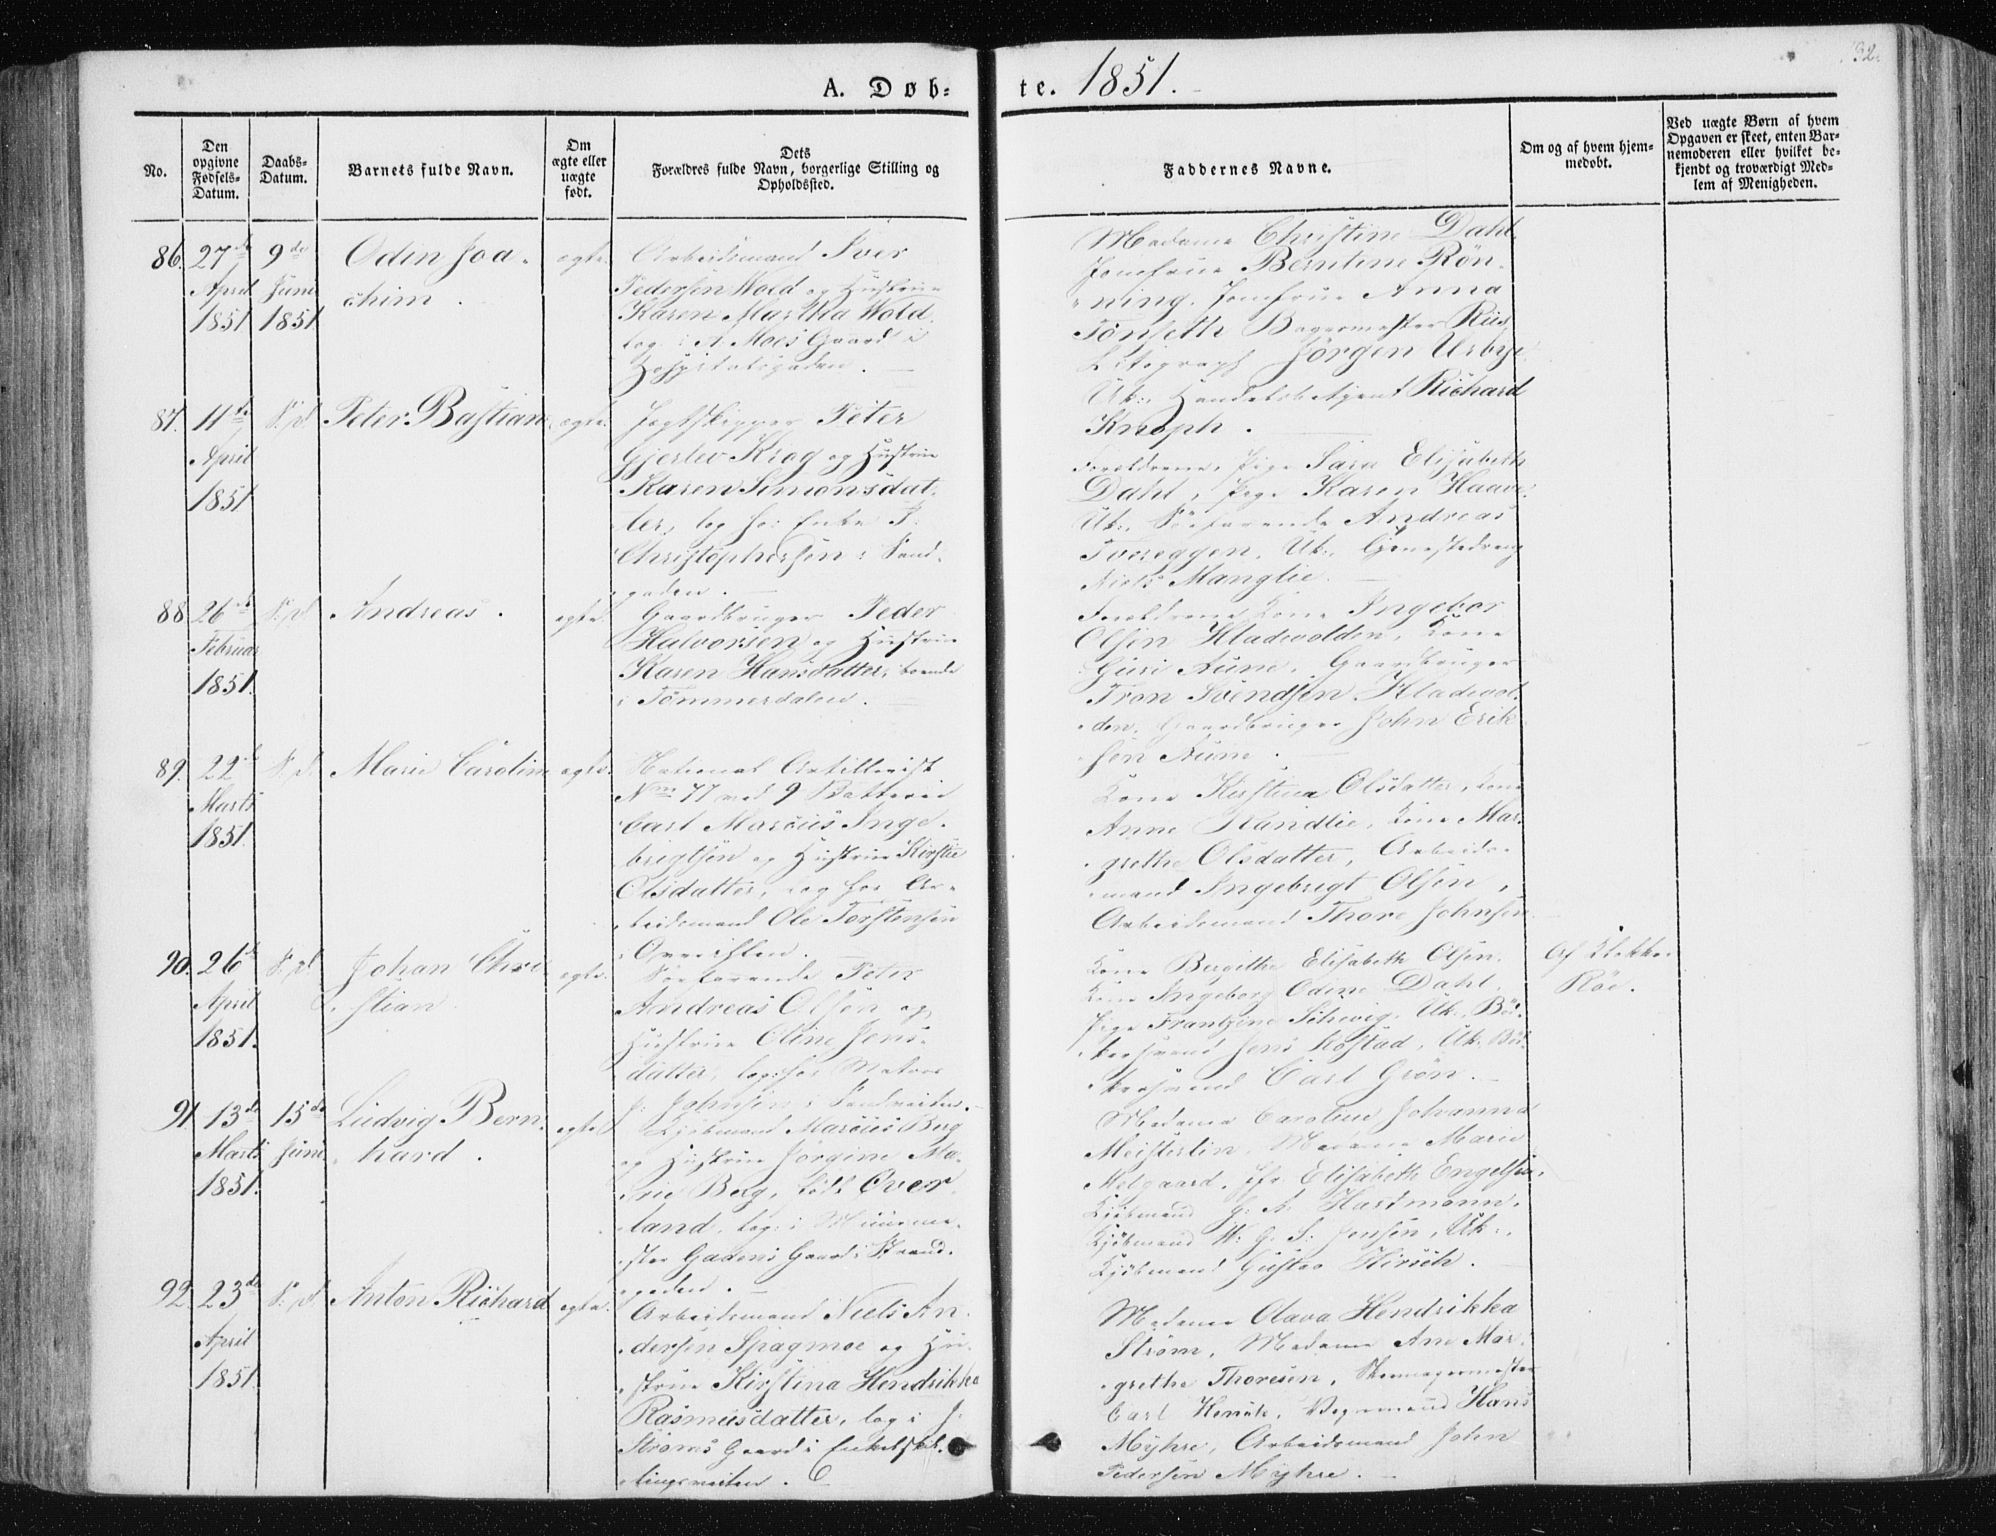 A. Døb-te. 1851.
32.
No.
Den opgivne Fødsels-Datum.
Daabs-Datum.
Barnets fulde Navn.
Om ægte eller uægte født.
Dets Forældres fulde Navn, borgerlige Stilling og Opholdssted.
Faddernes Navne.
Om og af hvem hjemmedøbt.
Ved uægte Børn af hvem Opgaven er skeet, enten Barnemoderen eller hvilket bekjendt og troværdigt Medlem af Menigheden.
86. 27de April 1851
9de Juni 1851
Odin Joa-
chim.
ægte.
Arbeidsmand Iver
Pedersen Wold og Hustrue
Karen Martha Wold
log. i A. Moes Gaard i
Hospitalsgaden.
Madame Christine Dahl,
Jomfrue Berntine Røn-
ning, Jomfrue Anna
Tønseth, Bagermester Riis,
Litograph Jørgen Urbye
Uk: Handelsbetjent Richard
Knoph.
87. 11te April 1851
S. d.
Peter Bastian
ægte.
Jagtskipper Peter
Gjerlev Krog og Hustrue
Karen Simonsdat-
ter, log. ho: Enke P.
Christophersen i Sand-
gaden.
Forældrene, Pige Sara Elisabeth
Dahl, Pige Karen Haave
Uk: Søefarende Andreas
Tvereggen, Uk:
Niels Manglie.
88. 26de Februar 1851.
S. d.
Andreas.
ægte.
Gaardbruger Peder
Halvorsen og Hustrue
Karen Hansdatter, boende
i Tømmerdalen.
Forældrene, Kone Ingebor
Olsen Kladevolden, Kone
Guri Aune, Gaardbruger
Tron Svendsen Kladevol-
den, Gaardbruger John Erik-
sen Aune.
89. 22de Marts 1851.
S. d.
Marie Caroline
ægte.
National Artillerist
No 77 ved 9 Batterie
Carl Marcus Inge-
brigtsen og Hustrue Kirstie
Olsdatter, log. hos Ar-
beidsmand Ole Torstensen
i Ovevitten.
Kone Kirstina Olsdatter, Kone
Anne Kandlie, Kone Mar-
grethe Olsdatter, Arbeids-
mand Ingebrigt Olsen,
Arbeidsmand Thore Johnsen
90. 26de April 1851.
S. d.
Johan Chri-
stian
ægte.
Søefarende Peter
Andreas Olsen og
Hustrue Oline Jens-
datter, log: hos Matros
J: Johnsen i Sandveiten.
Kone Bergithe Elisabeth Olsen,
Kone Ingeborg Odine Dahl,
Pige Frantzine Schivig, Uk: Bød-
kersvend Jens Kostad, Uk: Bød-
kersvend Carl Grøn.
Af Klokker
Röe.
91. 13de Marts 1851.
15de Juni
Ludvig Bern-
hard.
ægte
Kjøbmand Marcus Berg
og Hustrue Jörgine Ma-
rie Berg, født Over-
land, log: i Muurme-
ster Gadens Gaard i Strand-
gaden.
Madame Caroline Johanna
Meisterlin, Madame Marie
Melgaard, Jfr. Elisabeth Engelsen,
Kjøbmand G. A. Hartmann,
Kjøbmand W. G. S. Jensen, Uk:
Kjøbmand Gustav Hirsch.
92. 23de April 1851.
S. d.
Anton Richard
ægte.
Arbeidsmand Niels An-
dersen Spagmoe og Hu-
strue Kirstina Hendrikka
Rasmusdatter, log. i J:
Strøms Gaard i Enkelskil-
lingsveiten.
Madame Olava Hendrikka
Strøm, Madame Ane Mar-
grethe Thoresen, Skomagermester
Carl Henrik, Vognmand Hans
Myhre, Arbeidsmand John
Pedersen Myhre.